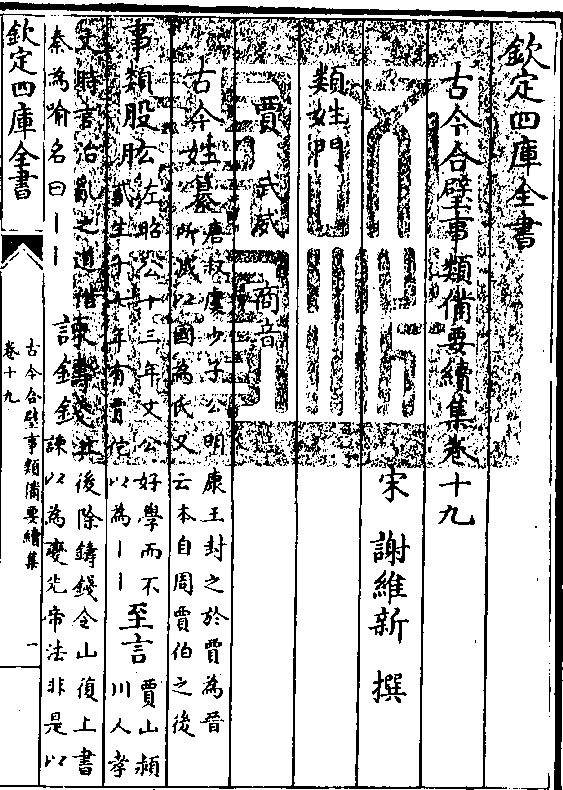 欽定四庫全書
古今合璧事類備要續集卷十九
宋 謝維新 撰
類姓門
賈 武威 商音
古今姓纂 唐叔虞少子公明康王封之於賈為晉
所滅以國為氏又云本自周賈伯之後
事類股肱 左昭公十三年文公好學而不
貳生十七年有賈佗以為｜｜ 至言 賈山潁
川人孝
文時言治亂之道借
秦為喻名曰｜｜ 諫鑄錢 其後除鑄錢令山復上書
諫以為變先帝法非是以
欽定四庫全書
古今合璧事類備要續集
卷十九
一